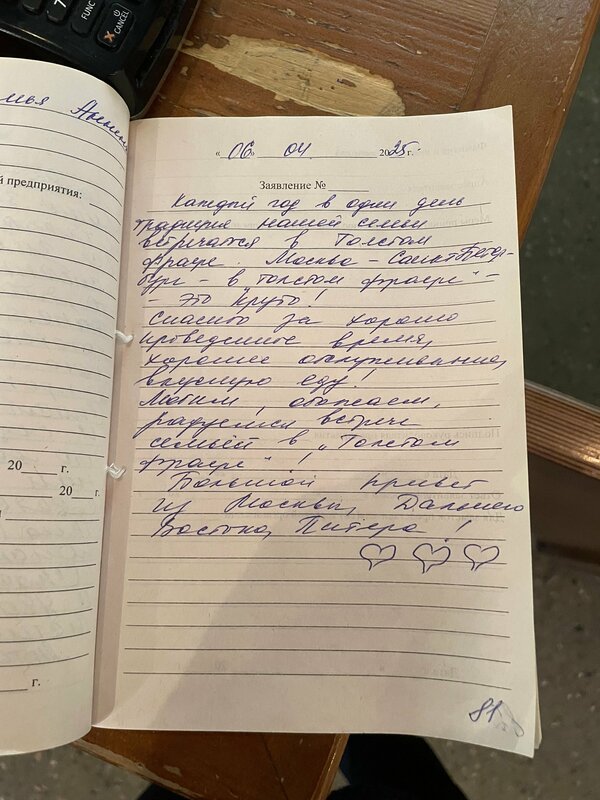 7
FUNC
CANCEL
ья Анны
й предприятия:
20 г.
20 г.
г.
« 06 » 04 2025 г.
Заявление №
Каждый год в один день
традиция нашей семьи
встречаться в Толстом
фраере. Москва – Санкт Петер-
бург – в „Толстом фраере" –
– это круто!
Спасибо за хорошо
проведенное время,
хорошее обслуживание,
вкусную еду!
Любим, обожаем,
радуемся встрече
семьёй в „Толстом
фраере" !
Большой привет
из Москвы, Дальнего
Востока, Питера !
81